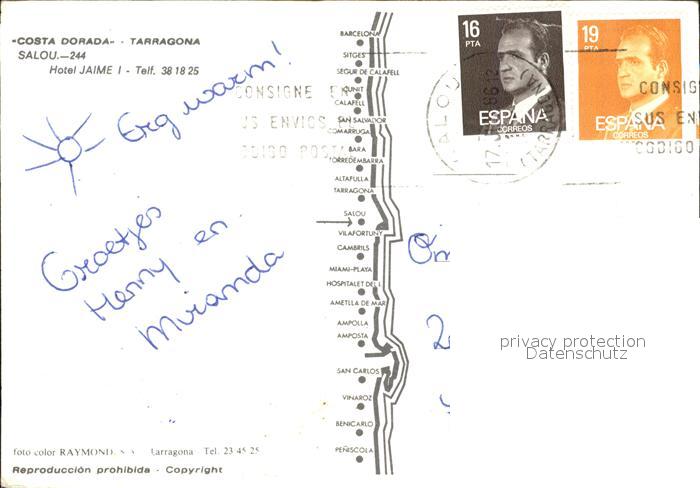 «COSTA DORADA» - TARRAGONA
SALOU.—244
Hotel JAIME I - Telf. 38 18 25
Erg warm!
Groetjes
Henny en
Miranda
foto color RAYMOND, S.A. Tarragona Tel. 23 45 25
Reproducción prohibida - Copyright
BARCELONA
SITGES
SEGUR DE CALAFELL
CUNIT
CALAFELL
SAN SALVADOR
COMARRUGA
BARA
TORREDEMBARRA
ALTAFULLA
TARRAGONA
SALOU
VILAFORTUNY
CAMBRILS
MIAMI-PLAYA
HOSPITALET DEL I.
AMETLLA DE MAR
AMPOLLA
AMPOSTA
SAN CARLOS
VINAROZ
BENICARLO
PEÑISCOLA
CONSIGNE EN
US ENVIOS
DIGO POSTA
SALOU
16
PTA
ESPAÑA
CORREOS
19
PTA
ESPAÑA
CORREOS
CONSIG
SUS EN
CODIGO
privacy protection
Datenschutz